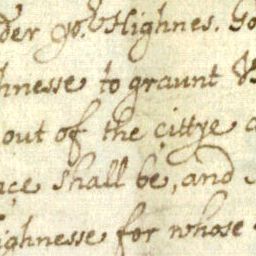 der yo.r Highnes. Go
hnesse to graunt
out of the cittye a
ace shall be, and
ighnesse for whose